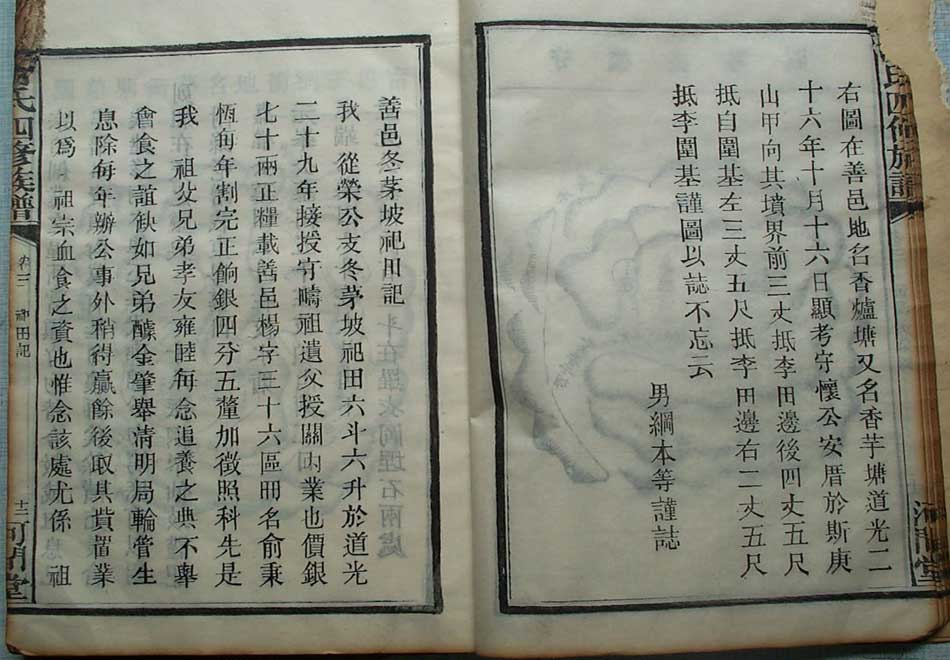 右圖在善邑地名香爐塘又名香芋塘道光二
十六年十月十六日顯考守懷公安厝於斯庚
山甲向其墳界前三丈抵李田邊後四丈五尺
抵自圍基左三丈五尺抵李田邊右二丈五尺
抵李圍基謹圖以誌不忘云
男綱本等謹誌
善邑冬茅坡祀田記
我從榮公支冬茅坡祀田六斗六升於道光
二十九年接授守疇祖遺父授關內業也價銀
七十兩正糧載善邑楊字三十六區冊名俞秉
恆每年割完正餉銀四分五釐加徵照科先是
我 祖父兄弟孝友雍睦每念追養之典不舉
會食之誼缺如兄弟醵金肇舉清明局輪管生
息除每年辦公事外稍得贏餘後取其貲置業
以為 祖宗血食之資也惟念該處尤係 祖
氏四修族譜
卷三
祀田記
十二
河間堂
四修族譜
河間堂